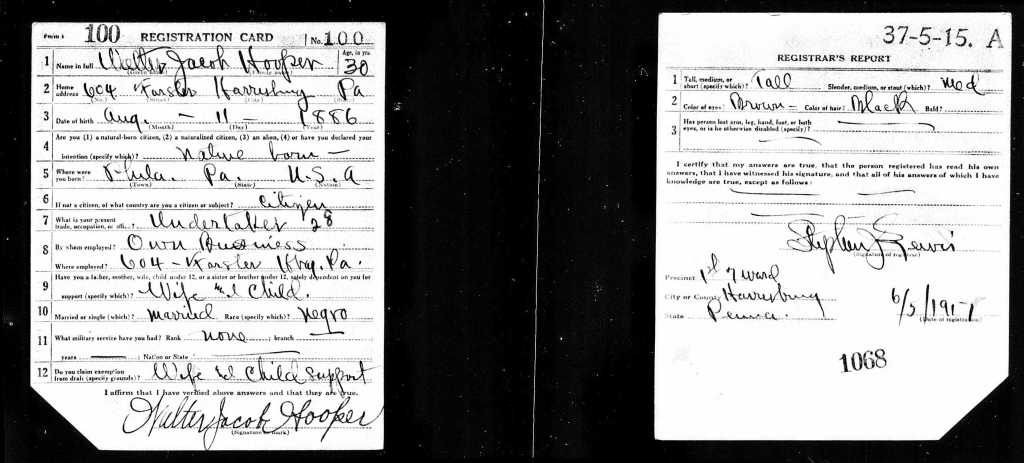 Form 1 100 REGISTRATION CARD No. 100
1 Name in full Walter Jacob Hooper Age, in yrs. 30
(Given name) (Family name)
2 Home address 604 Forster Harrisburg Pa
(No.) (Street) (City) (State)
3 Date of birth Aug. - 11 - 1886
(Month) (Day) (Year)
Are you (1) a natural-born citizen, (2) a naturalized citizen, (3) an alien, (4) or have you declared your
4 intention (specify which)? Native born -
5 Where were you born? Phila. Pa. U.S.A
(Town) (State) (Nation)
6 If not a citizen, of what country are you a citizen or subject? Citizen
7 What is your present trade, occupation, or office? Undertaker 28
8 By whom employed? Own Business
Where employed? 604 - Forster Hbg. Pa.
9 Have you a father, mother, wife, child under 12, or a sister or brother under 12, solely dependent on you for
support (specify which)? Wife and Child.
10 Married or single (which)? Married Race (specify which)? Negro
11 What military service have you had? Rank none ; branch
years ; Nation or State
12 Do you claim exemption from draft (specify grounds)? Wife and Child support
I affirm that I have verified above answers and that they are true.
Walter Jacob Hooper
(Signature or mark)
37-5-15. A
REGISTRAR'S REPORT
1 Tall, medium, or short (specify which)? Tall Slender, medium, or stout (which)? Med
2 Color of eyes? Brown - Color of hair? Black Bald?
3 Has person lost arm, leg, hand, foot, or both eyes, or is he otherwise disabled (specify)?
I certify that my answers are true, that the person registered has read his own
answers, that I have witnessed his signature, and that all of his answers of which I have
knowledge are true, except as follows:
Stephen J Lewis
(Signature of registrar)
Precinct 1st 7 Ward
City or County Harrisburg
State Penna. 6/5/1917
(Date of registration)
1068